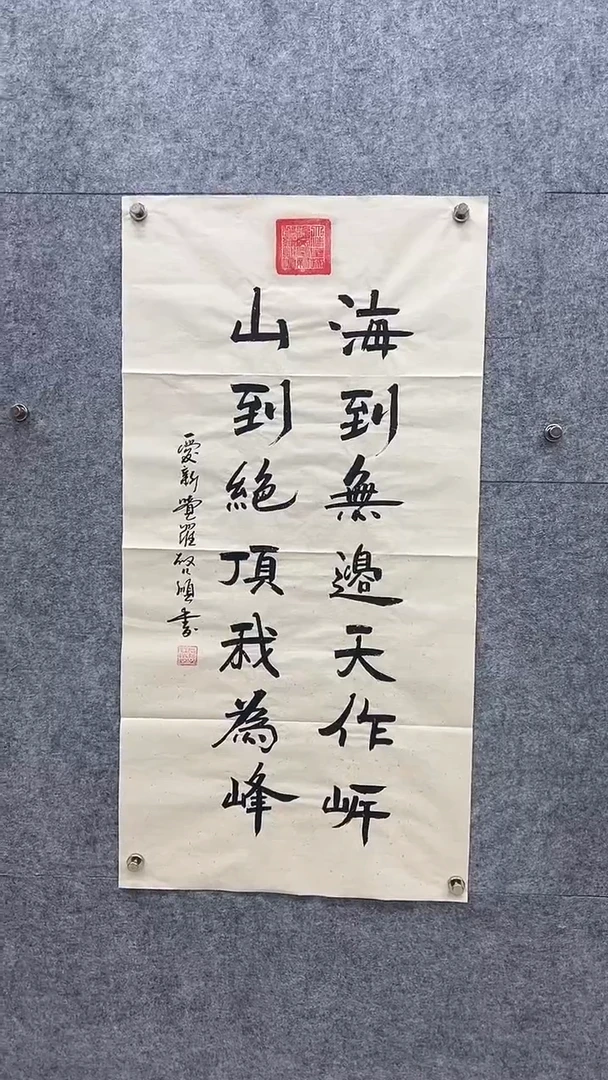 海到無邊天作岸
山到絕頂我為峰
愛新覺羅啓順書